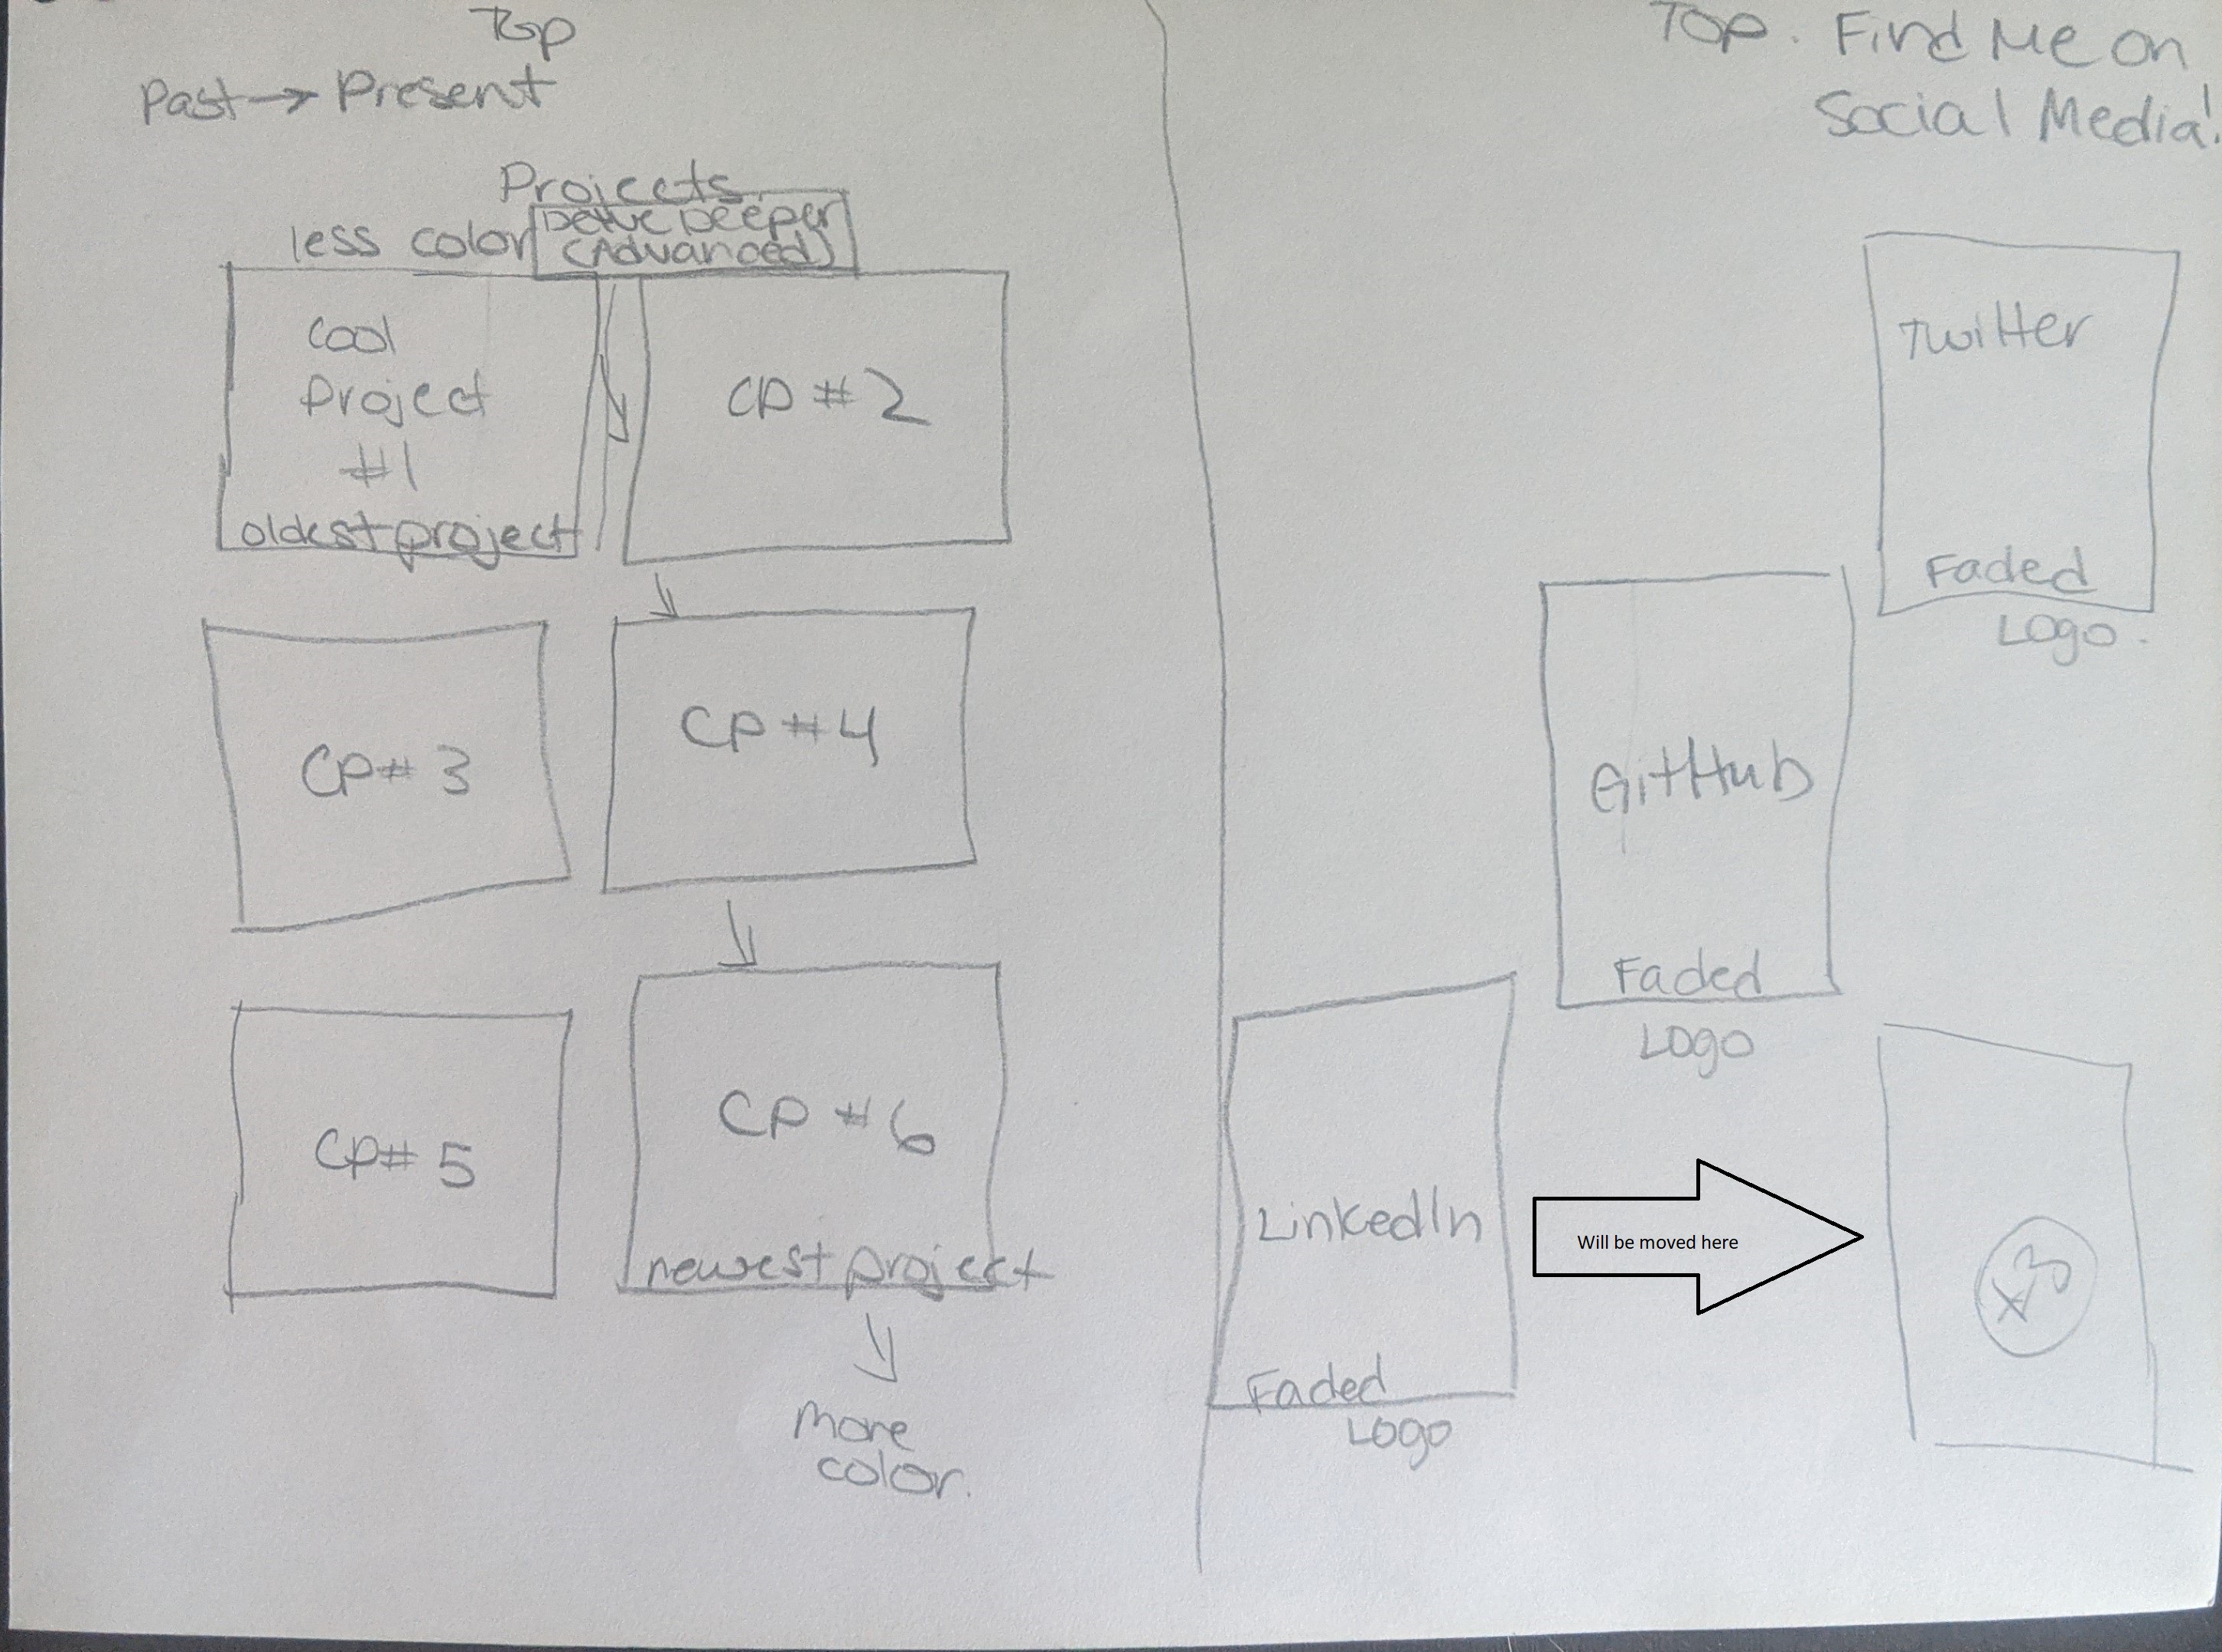 Top
Past → Present
Projects
less color
Delve Deeper
(Advanced)
Cool
Project
#1
oldest project
CP #2
CP# 3
CP #4
CP# 5
CP #6
newest project
More
color.
TOP. Find Me on
Social Media!
Twitter
Faded
Logo.
GitHub
Faded
Logo
LinkedIn
Faded
Logo
Will be moved here